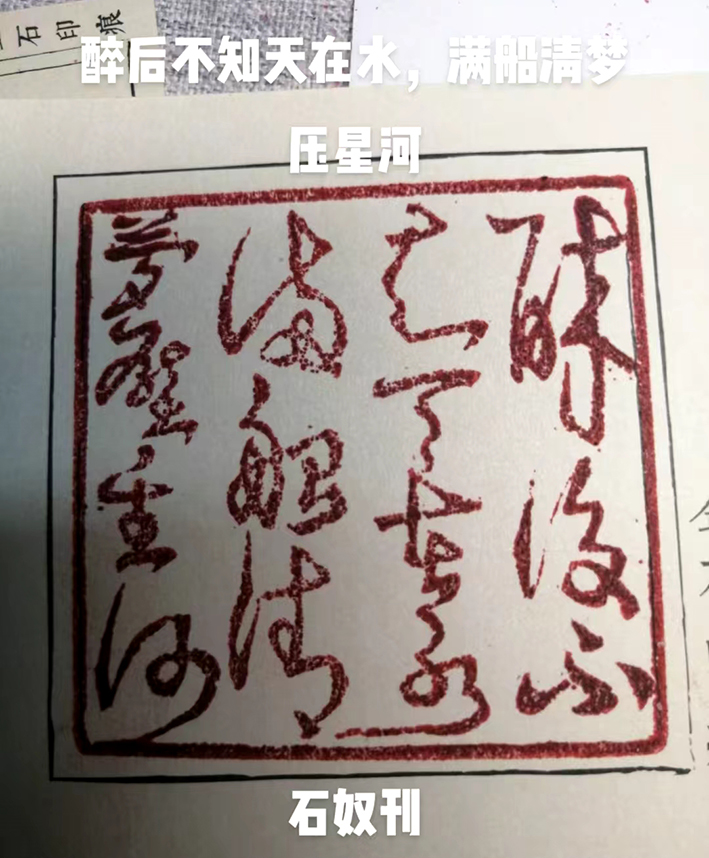 石印痕
醉后不知天在水，满船清梦
压星河
醉後不
知天在水
滿船清
夢壓星河
石奴刊